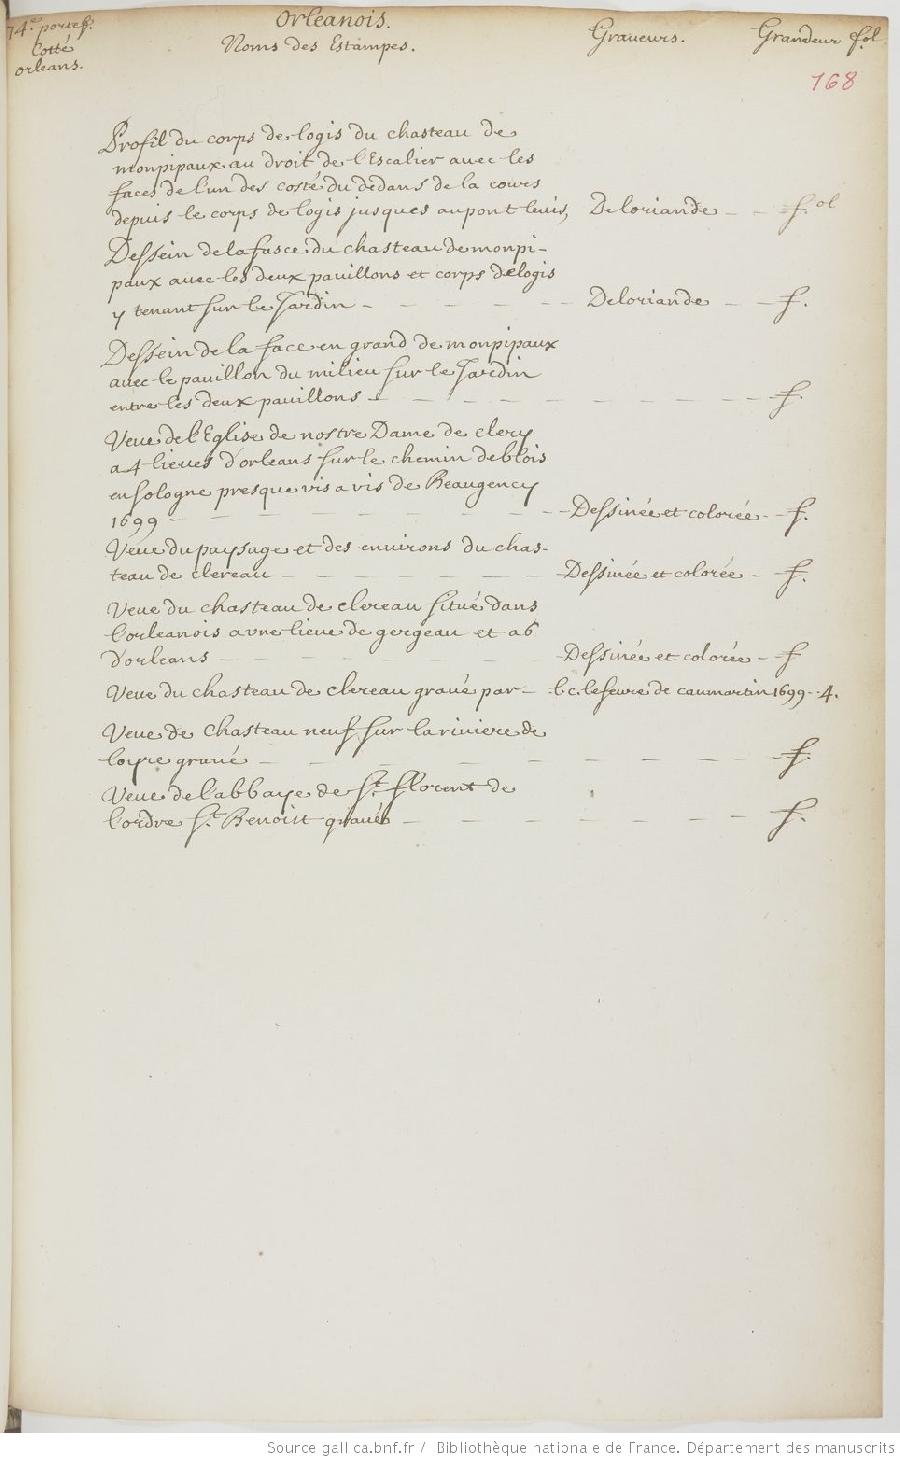 74.e portef.
Cotté
orleans.
Orleanois.
Noms des Estampes. Graveurs. Grandeur fol
168
Profil du corps de logis du chasteau de
monpipaux au droit de l'Escalier avec les
faces de l'un des costé du dedans de la cours
depuis le corps de logis jusques au pont levis, Deloriande - - f.ol
Dessein de la fasce du chasteau de monpi-
paux avec les deux pavillons et corps de logis
y tenant sur le Jardin - - - - - Deloriande - - f.
Dessein de la face en grand de monpipaux
avec le pavillon du milieu sur le Jardin
entre les deux pavillons - - - - - - - - - f.
Veue de l'Eglise de nostre Dame de clery
a 4 lieues d'orleans sur le chemin de blois
en sologne presque vis a vis de Beaugency
1699 - - - - - - - Dessinée et colorée - - f.
Veue du paysage et des environs du chas-
teau de clereau - - - - - - Dessinée et colorée - f.
Veue du chasteau de clereau situé dans
l'orleanois a une lieue de gergeau et a 6
d'orleans - - - - - - Dessinée et colorée - f
Veue du chasteau de clereau gravé par - l. c. lefevre de caumartin 1699 - 4.
Veue de chasteau neuf sur la riviere de
loyre gravé - - - - - - - - f.
Veue de l'abbaye de St. fflorent de
l'ordre St. Benoist gravée - - - - - - - f.
Source gallica.bnf.fr / Bibliothèque nationale de France. Département des manuscrits